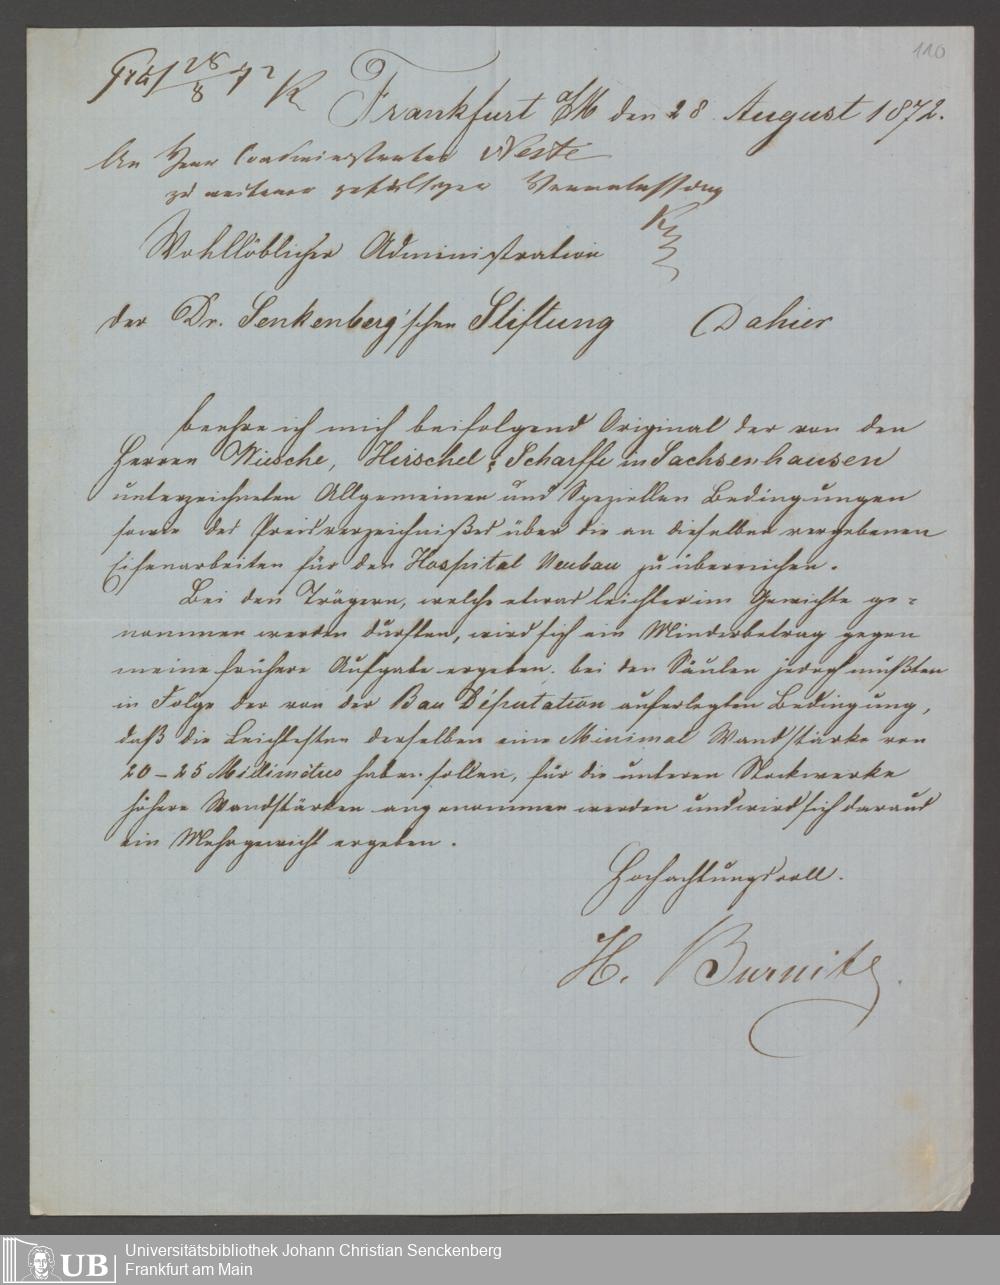 110
Präs 28/8 72 K
Frankfurt a/M den 28 August 1872.
An Herrn Coadministrator Neste
zu weiterer gefälligen Veranlassung
Wohllöblicher Administration
der Dr. Senkenberg'schen Stiftung Dahier
beehre ich mich beifolgend Original der von den
Herren Wiesche, Hirschel & Scharffe in Sachsenhausen
unterzeichneten Allgemeinen und Speziellen Bedingungen
sowie des Preisverzeichnißes über die an dieselben vergebenen
Eisenarbeiten für den Hospital Neubau zu überreichen.
Bei den Trägern, welche etwas leichter im Gewichte ge-
nommen werden durften, wird sich ein Minderbetrag gegen
meine frühere Aufgabe ergeben. bei den Säulen jedoch mußten
in Folge der von der Bau Députation auferlegten Bedingung,
daß die Leichtesten derselben eine Minimal Wandstärke von
20-25 Milimètres haben sollen, für die unteren Stockwerke
höhere Wandstärken angenommen werden und wird sich daraus
ein Mehrgewicht ergeben.
Hochachtungsvoll.
H. Burnitz
UB
Universitätsbibliothek Johann Christian Senckenberg
Frankfurt am Main